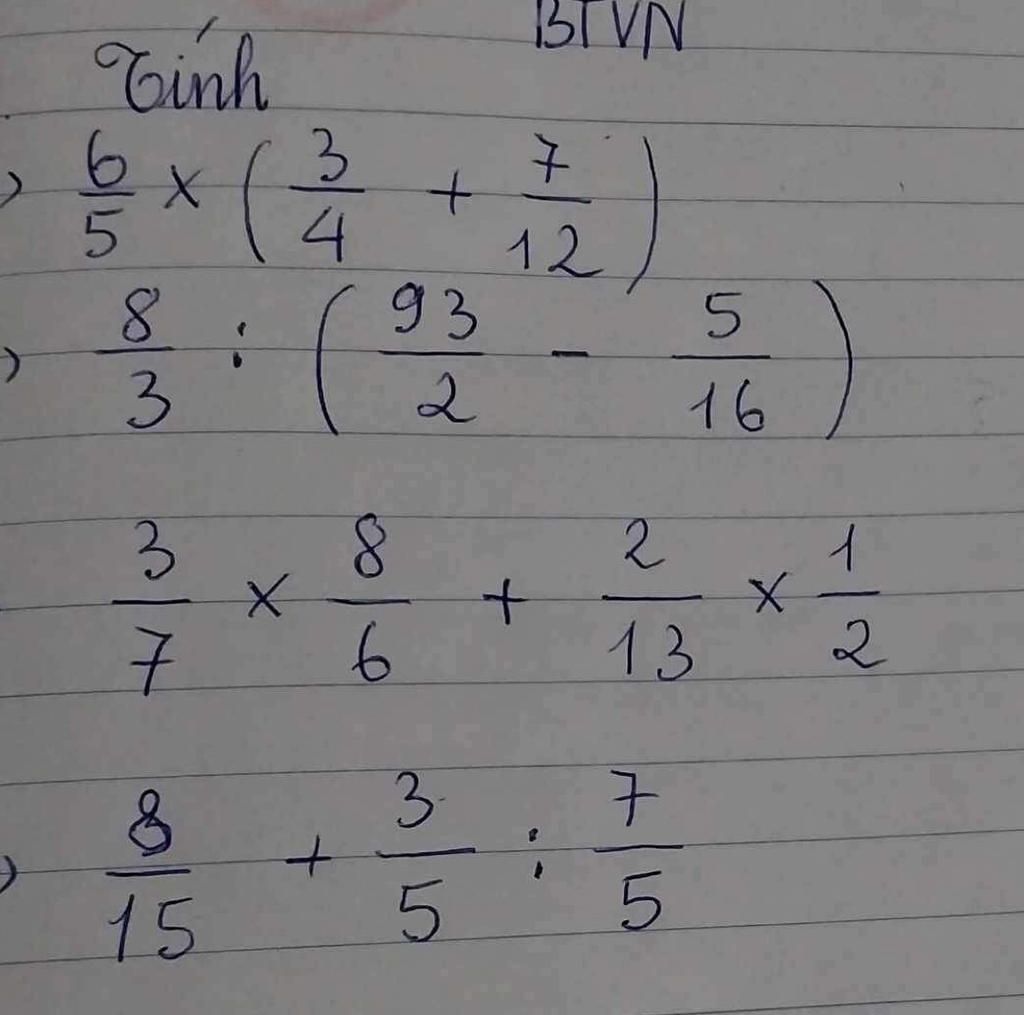 BTVN
Tính
) 6/5 × ( 3/4 + 7/12 )
) 8/3 : ( 93/2 - 5/16 )
3/7 × 8/6 + 2/13 × 1/2
) 8/15 + 3/5 : 7/5